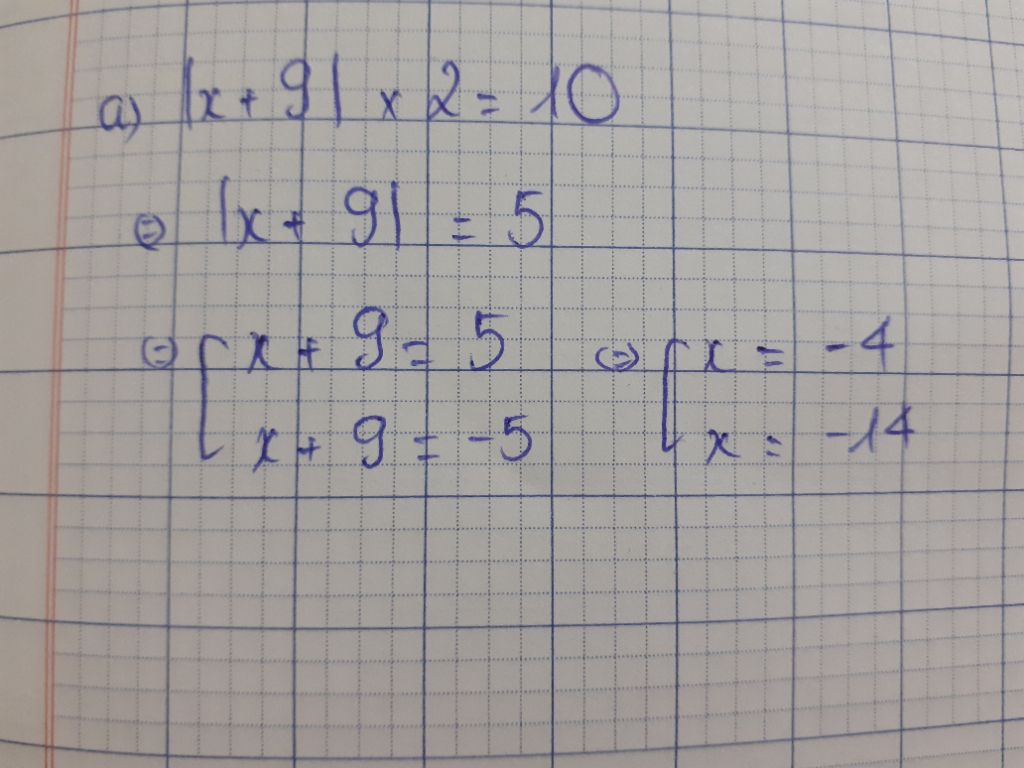 a) |x + 9| × 2 = 10
⇔ |x + 9| = 5
⇔ [ x + 9 = 5 ⇔ [ x = -4
x + 9 = -5 x = -14